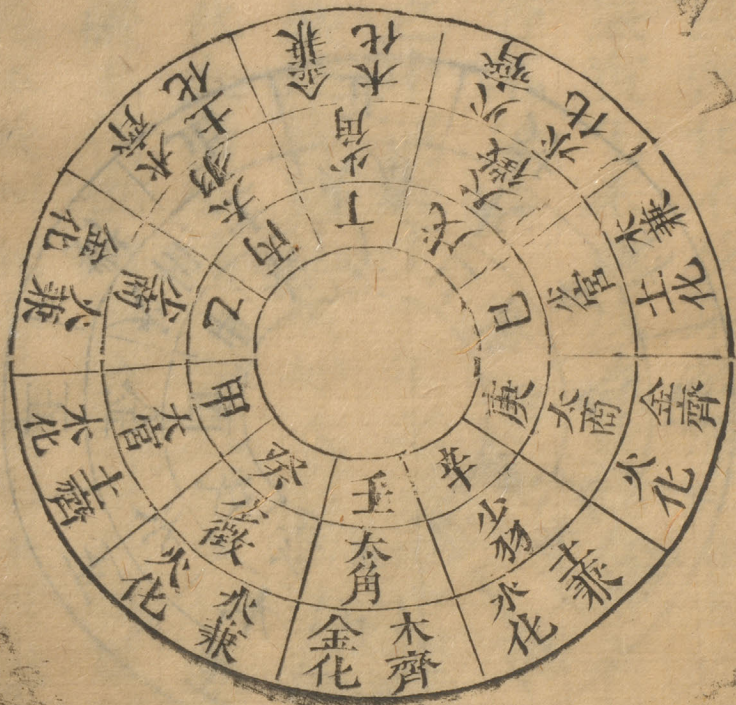 甲
太宮
土齊
木化
乙
少商
金化
火兼
丙
太羽
水齊
土化
丁
少角
木化
金兼
戊
太徵
火齊
水化
巳
少宮
土化
木兼
庚
太商
金齊
火化
辛
少羽
水化
土兼
壬
太角
木齊
金化
癸
少徵
火化
水兼